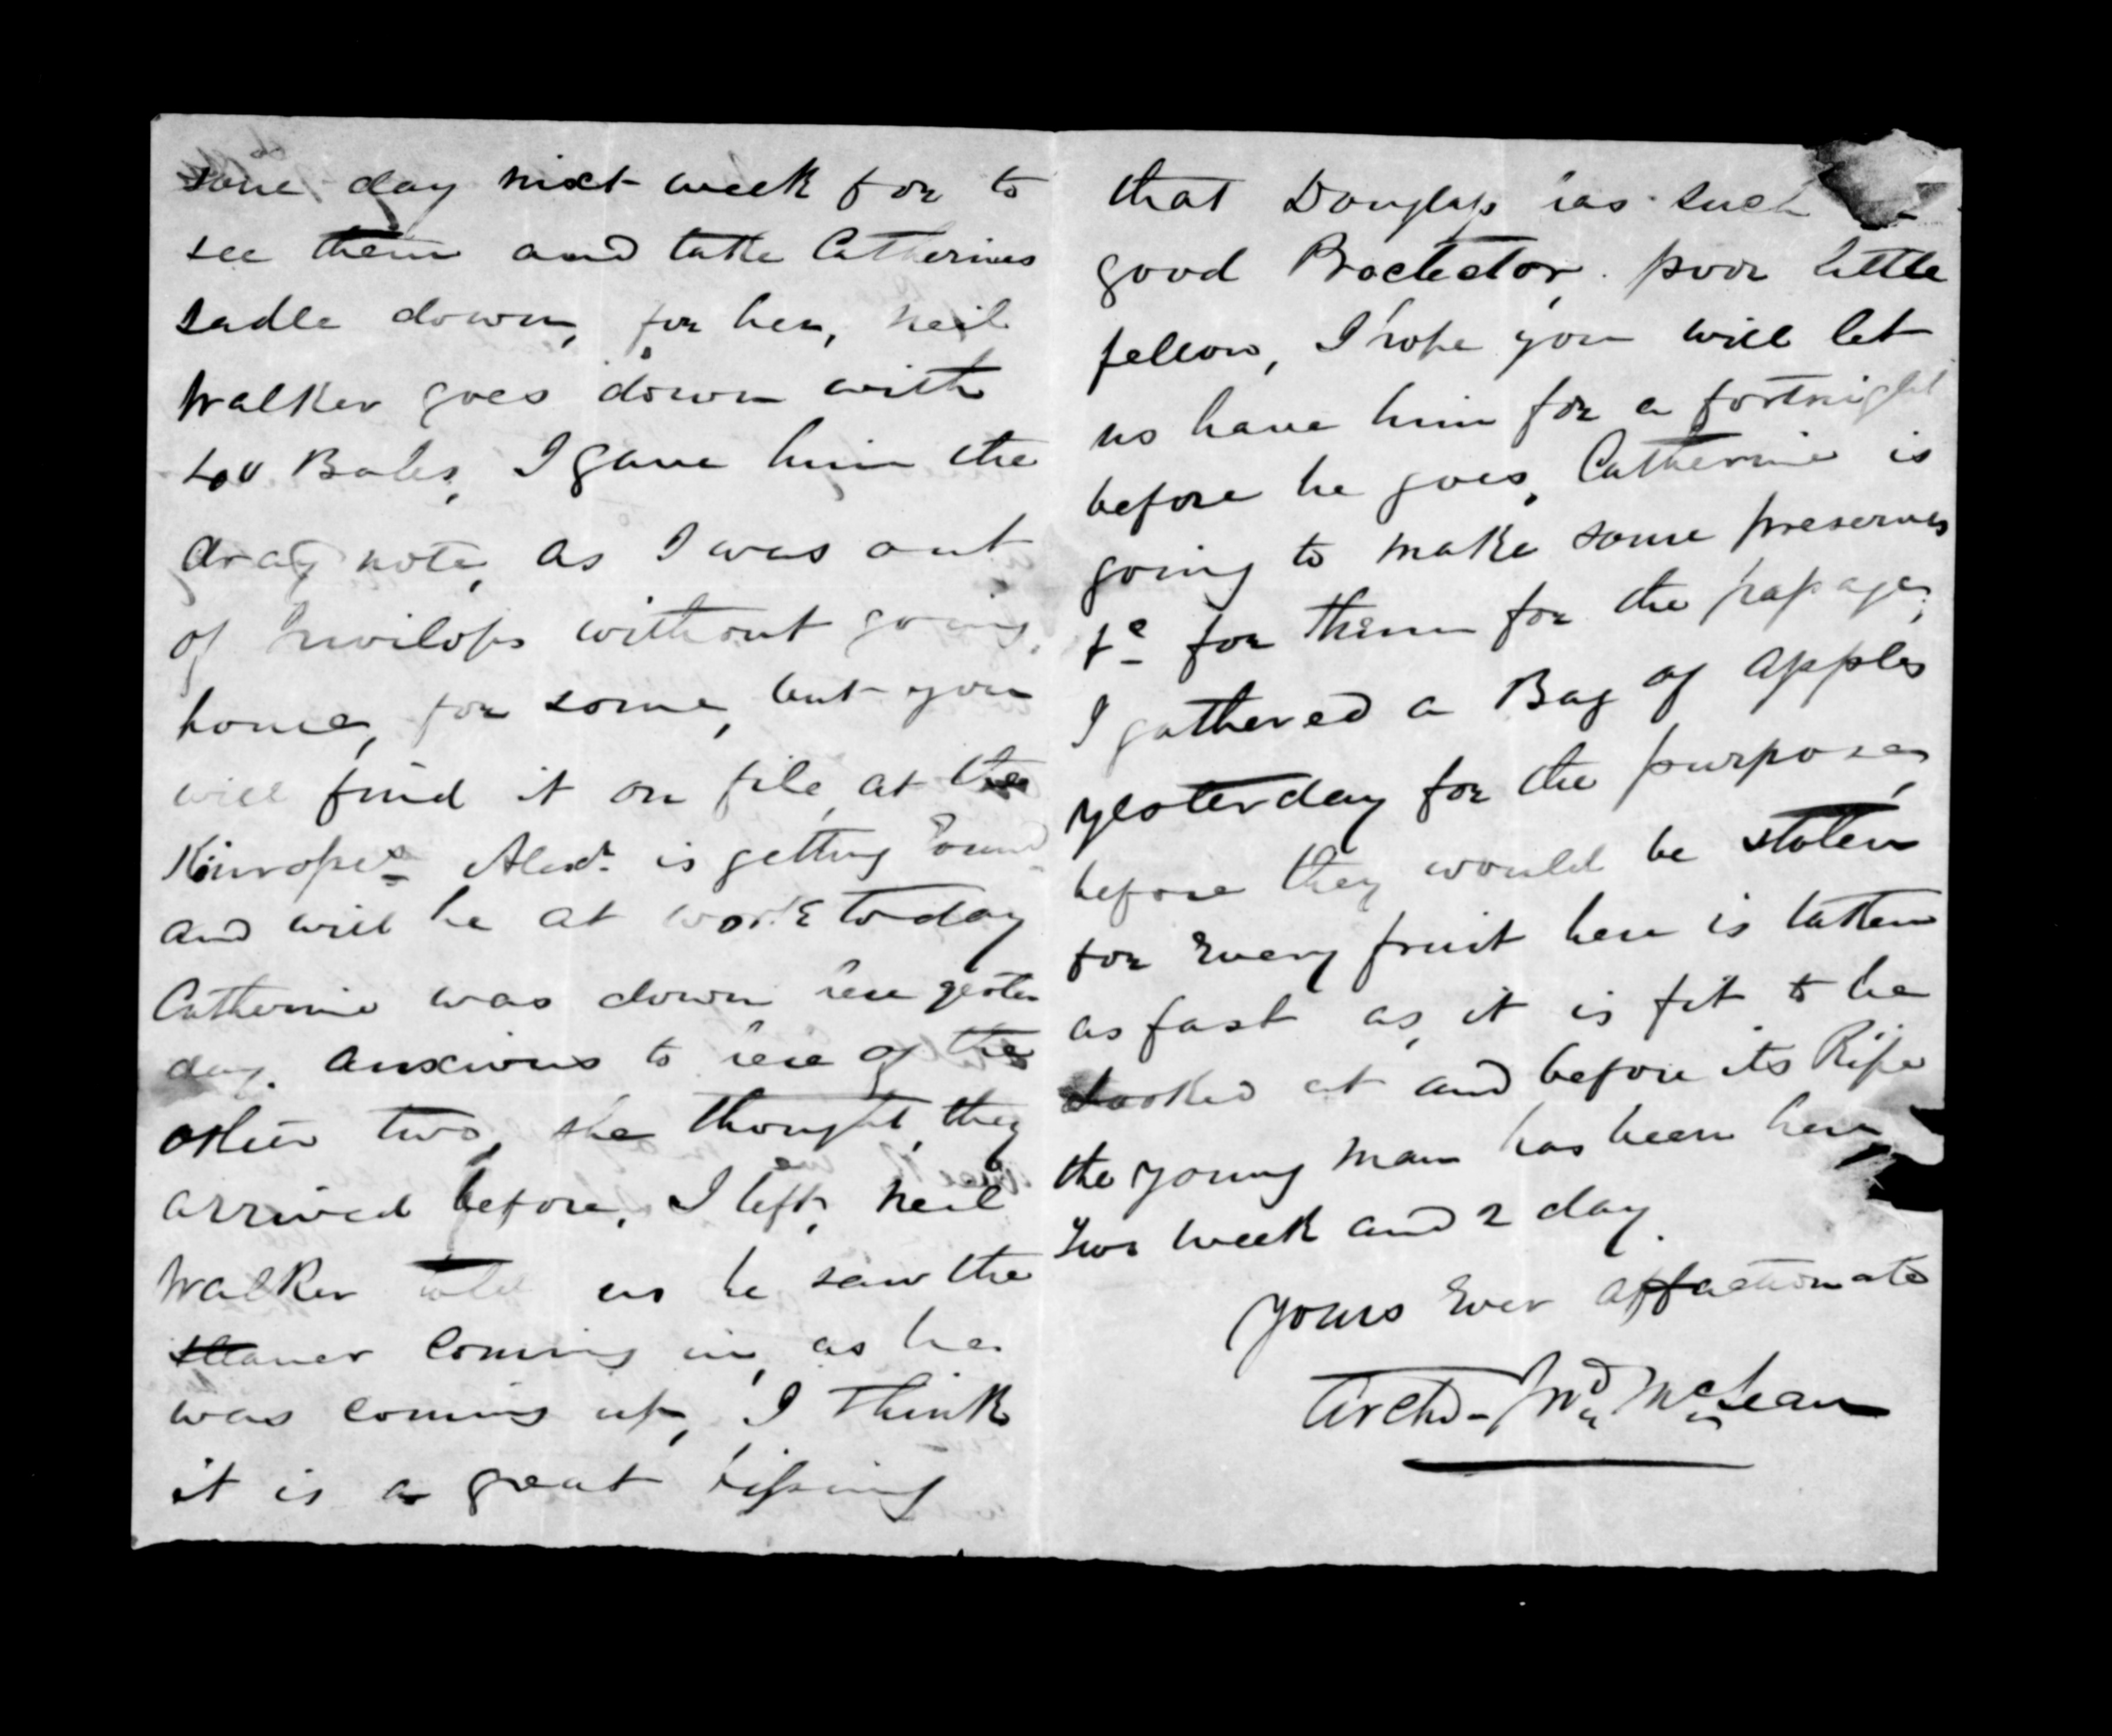 some day nixt week for to
see them and take Catherines
sadle down, for her, Neil
Walker goes down with
400 Bales, I gave him the
dray note, as I was out
of Invilops without going
home, for some, but you
will find it on file at the
Kinross's Alexr. is getting round
and will be at work today
Catherine was down here yester
day. anxious to here of the
other two, she thought they
arrived before, I left, Neil
Walker told us he saw the
steamer coming in, as he
was coming up, I think
it is a great blessing
that Douglass has such
good Proctector, poor little
fellow, I hope you will let
us have him for a fortnight
before he goes, Catherine is
going to make some preserves
&c for them for the passage,
I gathered a Bag of apples
yesterday for the purpose,
before they would be stolen
for Every fruit here is taken
as fast as it is fit to be
Looked at and before its Ripe
the young man has been here
Two week and 2 day.
Yours Ever affactionate
Archd. Jno McLean